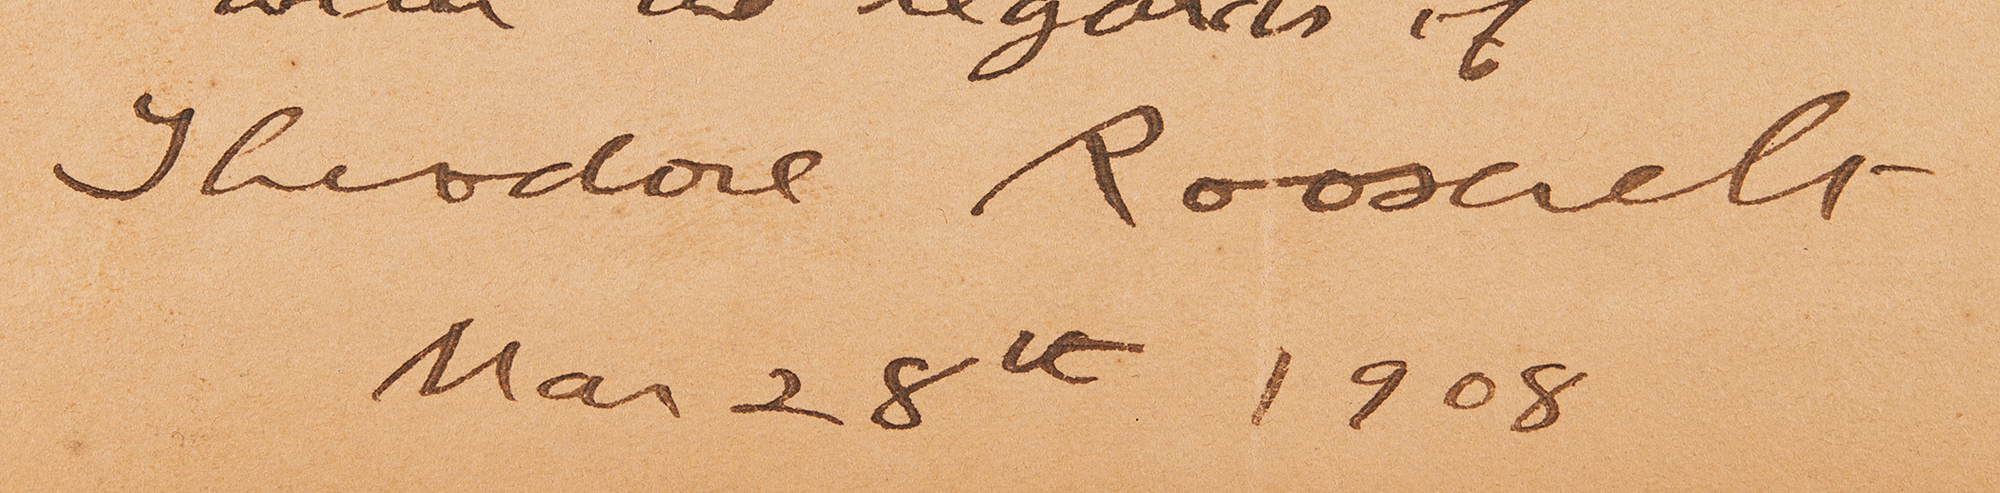 with the regards of
Theodore Roosevelt
Mar 28th 1908